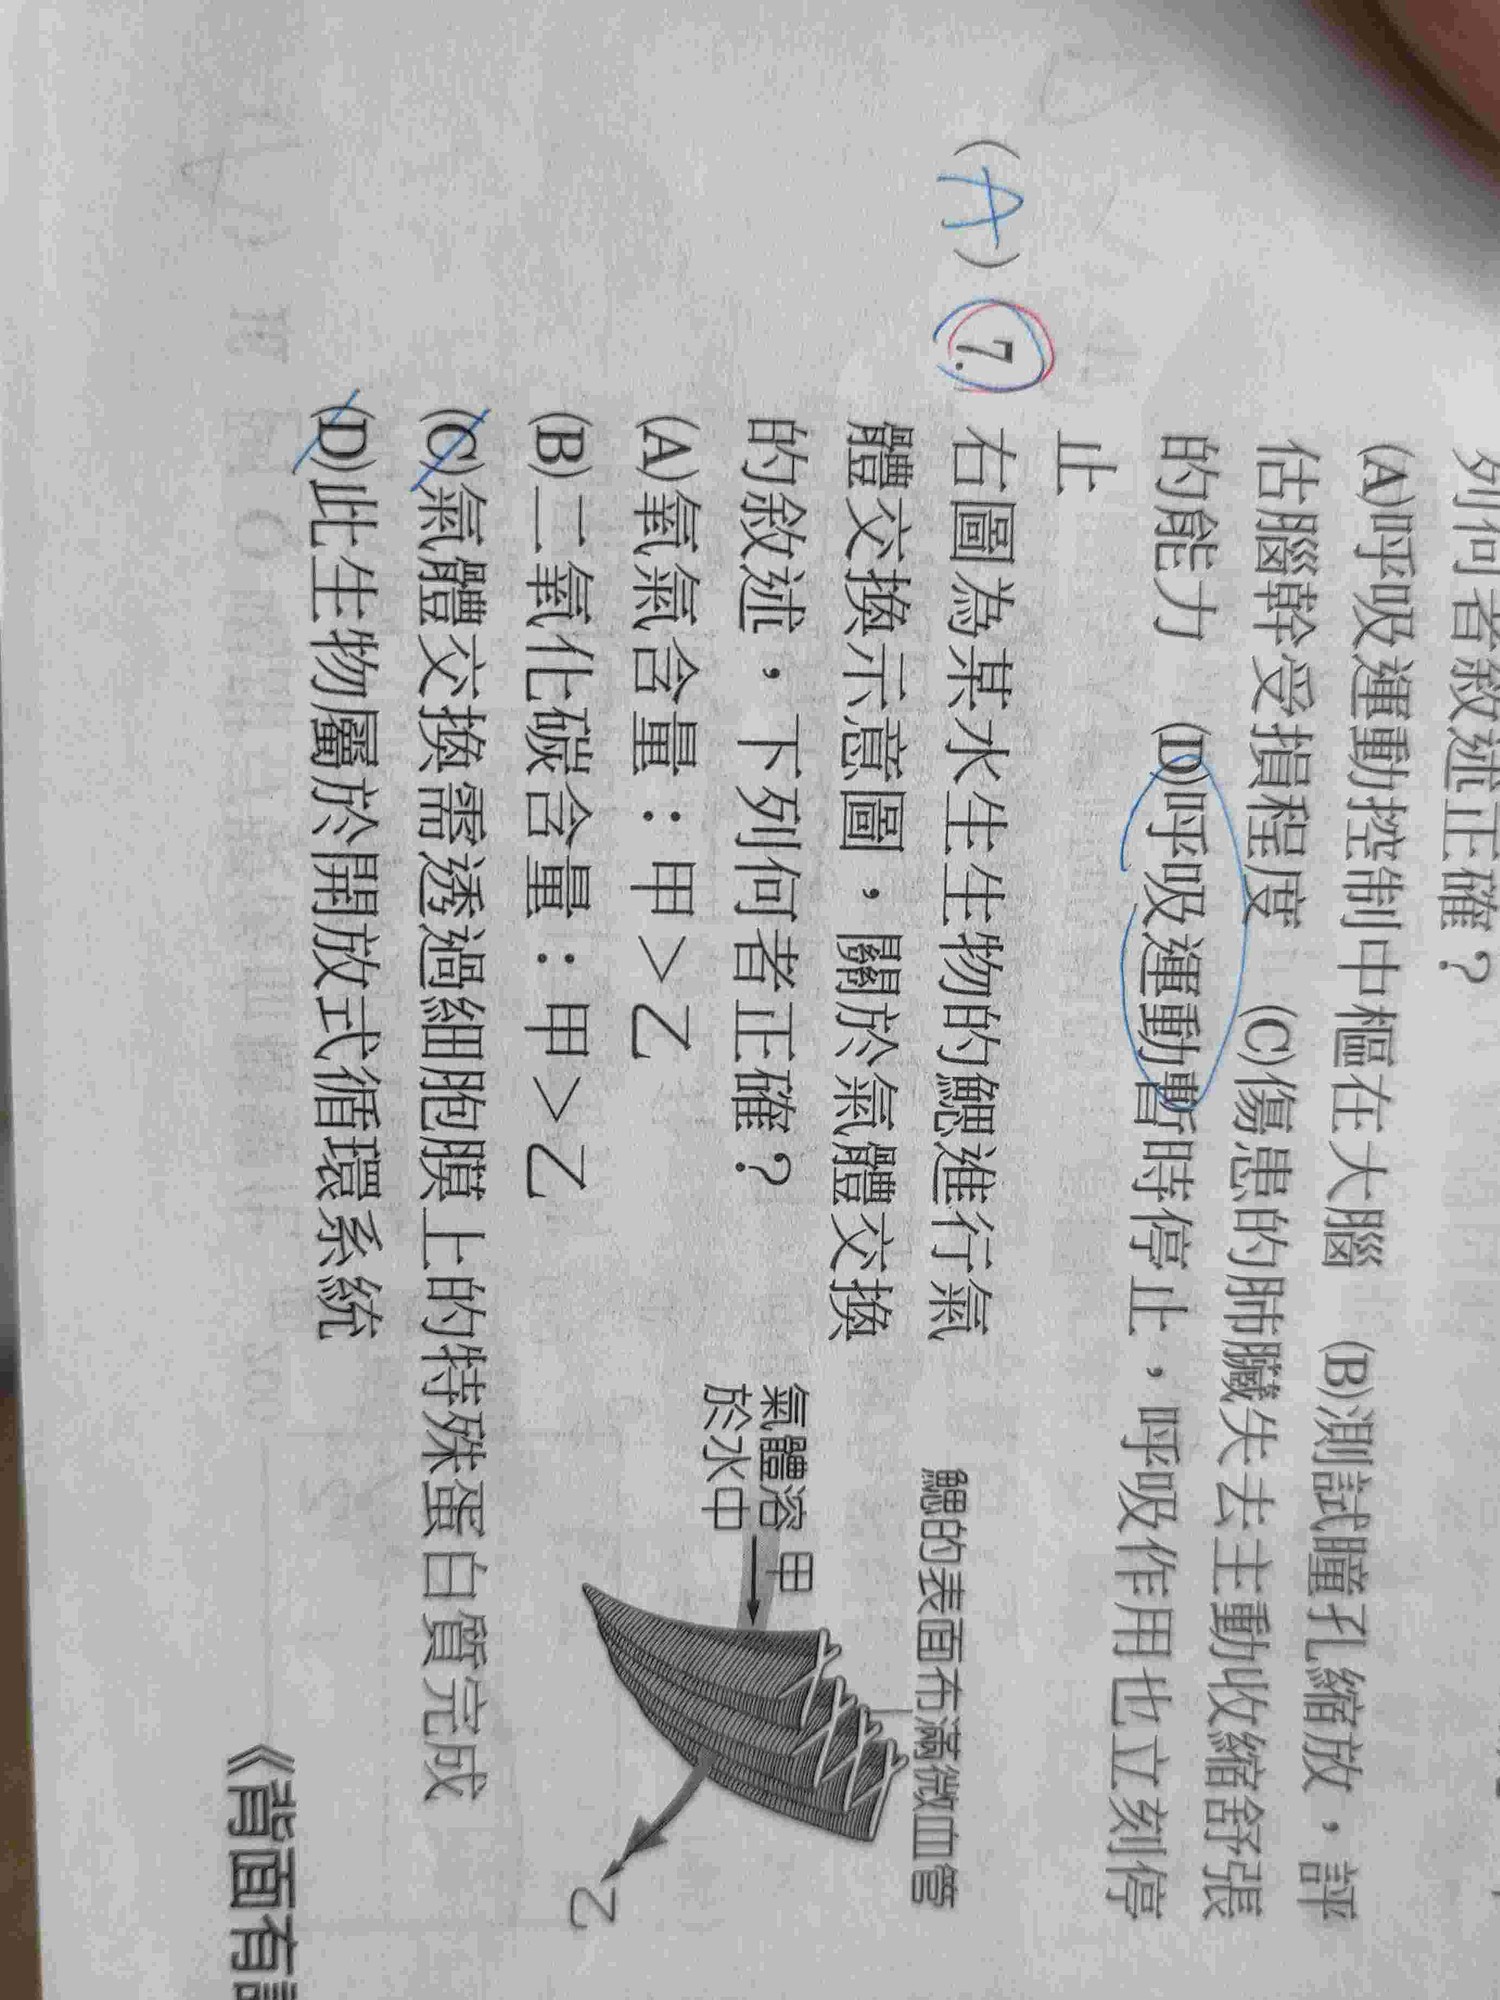 列何者敘述正確？
(A)呼吸運動控制中樞在大腦　(B)測試瞳孔縮放，評
估腦幹受損程度　(C)傷患的肺臟失去主動收縮舒張
的能力　(D)呼吸運動暫時停止，呼吸作用也立刻停
止
(A) 7. 右圖為某水生生物的鰓進行氣
體交換示意圖，關於氣體交換
的敘述，下列何者正確？
(A)氧氣含量：甲＞乙
(B)二氧化碳含量：甲＞乙
(C)氣體交換需透過細胞膜上的特殊蛋白質完成
(D)此生物屬於開放式循環系統
鰓的表面布滿微血管
氣體溶
於水中
甲
乙
《背面有